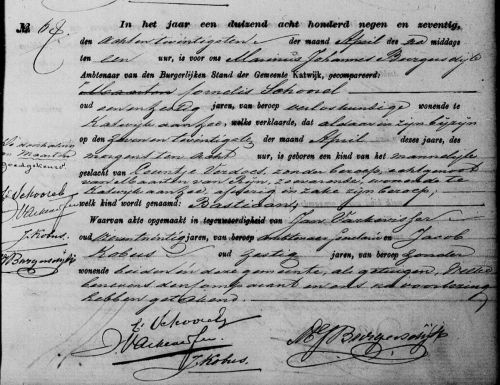 68. In het jaar een duizend acht honderd negen en zeventig,
den achtentwintigsten der maand April des na middags
ten een uur, is voor ons Marinus Johannes Burgersdijk
Ambtenaar van den Burgerlijken Stand der Gemeente Katwijk, gecompareerd:
Maarten Cornelis
oud jaren, van beroep verloskundige wonende te
Katwijk aan Zee, welke verklaarde, dat alsdan in zijn bijzijn
op den zevenentwintigsten der maand April dezes jaars, des
morgens ten acht uur, is geboren een kind van het mannelijk
geslacht van Leuntje Verdoes, zonder beroep, echtgenoot
van Maarten van Rijn, zeeman, wonende te
Katwijk aan Zee, afwezig in zake zijn beroep,
welk kind wordt genaamd: Bastiaan
Waarvan akte opgemaakt in tegenwoordigheid van Jan Varkevisser
oud jaren, van beroep ambtenaar en Jacob
Kobus oud zestig jaren, van beroep zonder
wonende beiden in deze gemeente, als getuigen, welke
benevens den comparant en ons na voorlezing
hebben geteekend.
De doorhaling
van Maarten
goedgekeurd
Varkevisser
J. Kobus
Burgersdijk
Varkevisser
J. Kobus
MJ Burgersdijk